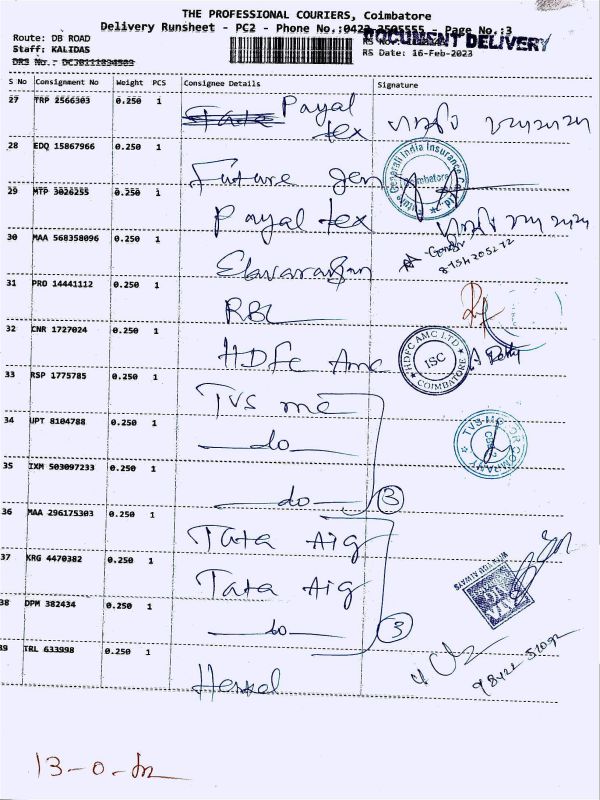 THE PROFESSIONAL COURIERS, Coimbatore
Delivery Runsheet - PC2 - Phone No.:0422 3505555 - Page No.:3
DOCUMENT DELIVERY
Route: DB ROAD
Staff: KALIDAS
RS Date: 16-Feb-2023
S No Consignment No Weight PCS Consignee Details Signature
27 TRP 2566303 0.250 1 Payal tex
28 EDQ 15867966 0.250 1 Future Gen
29 MTP 3026255 0.250 1 Payal tex
30 MAA 568358096 0.250 1 Elavarasan
31 PRO 14441112 0.250 1 RBL
32 CNR 1727024 0.250 1 HDFC Amc
HDFC AMC LTD
ISC
COIMBATORE
33 RSP 1775785 0.250 1 TVS mc
34 UPT 8104788 0.250 1 do
TVS MOTOR COMPANY
35 IXM 503097233 0.250 1 do 3
36 MAA 296175303 0.250 1 Tata Aig
37 KRG 4470382 0.250 1 Tata Aig
38 DPM 382434 0.250 1 do 3
39 TRL 633998 0.250 1